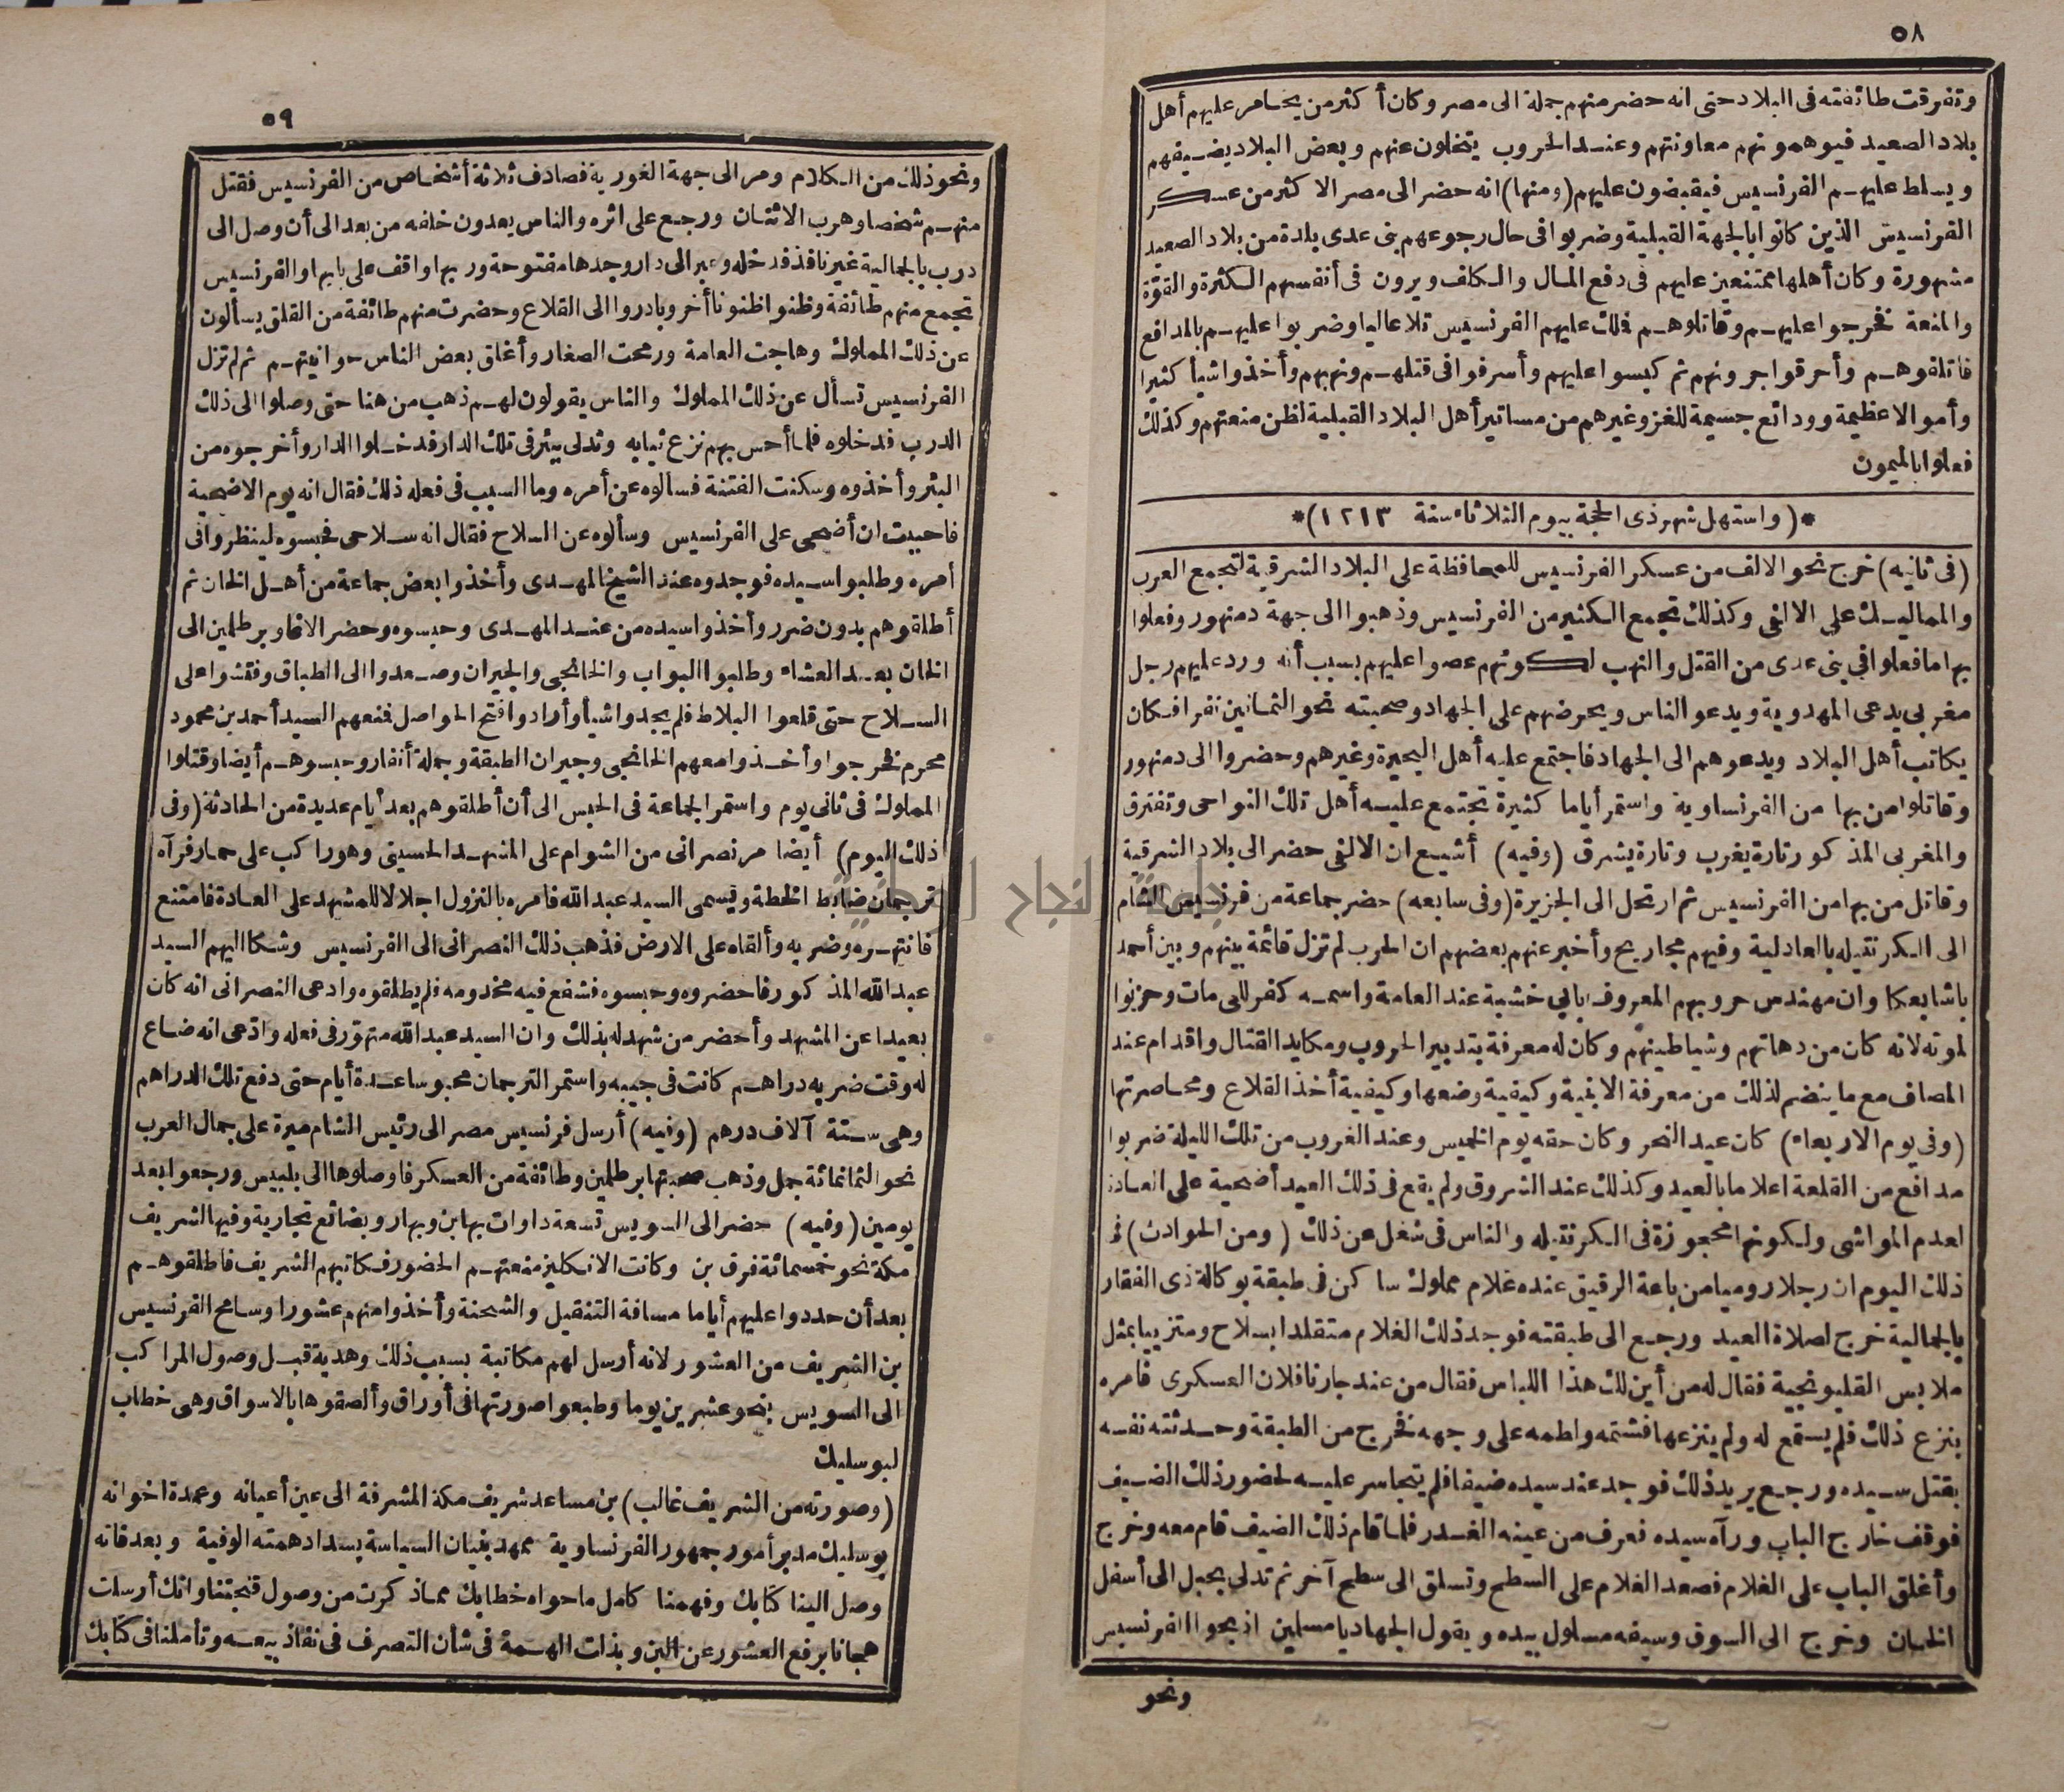 ٥٨
وتفرقت طائفته فى البلاد حتى انه حضر منهم جملة الى مصر وكان أكثر من يخامر عليهم أهل
بلاد الصعيد فيوهمونهم معاونتهم وعند الحروب يتخلون عنهم وبعض البلاد يضيفهم
ويسلط عليهم الفرنسيس فيقبضون عليهم (ومنها) انه حضر الى مصر الاكثر من عسكر
الفرنسيس الذين كانوا بالجهة القبلية وضربوا فى حال رجوعهم بنى عدى بلدة من بلاد الصعيد
مشهورة وكان أهلها ممتنعين عليهم فى دفع المال والكلف ويرون فى أنفسهم الكثرة والقوة
والمنعة فخرجوا عليهم وقاتلوهم فملك عليهم الفرنسيس تلا عاليا وضربوا عليهم بالمدافع
فاتلفوهم وأحرقوا جرونهم ثم كبسوا عليهم وأسرفوا فى قتلهم ونهبهم وأخذوا شيأ كثيرا
وأموالا عظيمة وودائع جسيمة للغز وغيرهم من مساتير أهل البلاد القبلية لظن منعتهم وكذلك
فعلوا بالميمون
*(واستهل شهر ذى الحجة بيوم الثلاثاء سنة ١٢١٣)*
(فى ثانيه) خرج نحو الالف من عسكر الفرنسيس للمحافظة على البلاد الشرقية لتجمع العرب
والمماليك على الالفى وكذلك تجمع الكثير من الفرنسيس وذهبوا الى جهة دمنهور وفعلوا
بها ما فعلوا فى بنى عدى من القتل والنهب لكونهم عصوا عليهم بسبب أنه ورد عليهم رجل
مغربى يدعى المهدوية ويدعو الناس ويحرضهم على الجهاد وصحبته نحو الثمانين نفرا فكان
يكاتب أهل البلاد ويدعوهم الى الجهاد فاجتمع عليه أهل البحيرة وغيرهم وحضروا الى دمنهور
وقاتلوا من بها من الفرنساوية واستمر أياما كثيرة تجتمع عليه أهل تلك النواحى وتفترق
والمغربى المذكور تارة يغرب وتارة يشرق (وفيه) أشيع ان الالفى حضر الى بلاد الشرقية
وقاتل من بها من الفرنسيس ثم ارتحل الى الجزيرة (وفى سابعه) حضر جماعة من فرنسيس الشام
الى الكرنتيله بالعادلية وفيهم مجاريح وأخبر عنهم بعضهم ان الحرب لم تزل قائمة بينهم وبين أحمد
باشا بعكا وان مهندس حروبهم المعروف بابى خشبة عند العامة واسمه كفرللى مات وحزنوا
لموته لانه كان من دهاتهم وشياطينهم وكان له معرفة بتدبير الحروب ومكايد القتال واقدام عند
المصاف مع ما ينضم لذلك من معرفة الابنية وكيفية وضعها وكيفية أخذ القلاع ومحاصرتها
(وفى يوم الاربعاء) كان عيد النحر وكان حقه يوم الخميس وعند الغروب من تلك الليلة ضربوا
مدافع من القلعة اعلاما بالعيد وكذلك عند الشروق ولم يقع فى ذلك العيد أضحية على العادة
لعدم المواشى ولكونها محجوزة فى الكرنتيله والناس فى شغل عن ذلك (ومن الحوادث) فى
ذلك اليوم ان رجلا روميا من باعة الرقيق عنده غلام مملوك ساكن فى طبقة بوكالة ذى الفقار
بالجمالية خرج لصلاة العيد ورجع الى طبقته فوجد ذلك الغلام متقلدا بسلاح ومتزييا بمثل
ملابس القليونجية فقال له من أين لك هذا اللباس فقال من عند جارنا فلان العسكرى فامره
بنزع ذلك فلم يستمع له ولم ينزعها فشتمه ولطمه على وجهه فخرج من الطبقة وحدثته نفسه
بقتل سيده ورجع يريد ذلك فوجد عند سيده ضيفا فلم يتجاسر عليه لحضور ذلك الضيف
فوقف خارج الباب ورآه سيده فعرف من عينه الغدر فلما قام ذلك الضيف قام معه وخرج
وأغلق الباب على الغلام فصعد الغلام على السطح وتسلق الى سطح آخر ثم تدلى بحبل الى أسفل
الخان وخرج الى السوق وسيفه مسلول بيده ويقول الجهاد يا مسلمين اذبحوا الفرنسيس
ونحو
٥٩
ونحو ذلك من الكلام ومر الى جهة الغورية فصادف ثلاثة أشخاص من الفرنسيس فقتل
منهم شخصا وهرب الاثنان ورجع على اثره والناس يعدون خلفه من بعد الى أن وصل الى
درب بالجمالية غير نافذ فدخله وعبر الى دار وجدها مفتوحة وربها واقف على بابها والفرنسيس
تجمع منهم طائفة وظنوا ظنونا أخر وبادروا الى القلاع وحضرت منهم طائفة من القلق يسألون
عن ذلك المملوك وهاجت العامة ورمحت الصغار وأغلق بعض الناس حوانيتهم ثم لم تزل
الفرنسيس تسأل عن ذلك المملوك والناس يقولون لهم ذهب من هنا حتى وصلوا الى ذلك
الدرب فدخلوه فلما أحس بهم نزع ثيابه وتدلى ببئر فى تلك الدار فدخلوا الدار وأخرجوه من
البئر وأخذوه وسكنت الفتنة فسألوه عن أمره وما السبب فى فعله ذلك فقال انه يوم الاضحية
فاحببت ان أضحى على الفرنسيس وسألوه عن السلاح فقال انه سلاحى فحبسوه لينظروا فى
أمره وطلبوا سيده فوجدوه عند الشيخ المهدى وأخذوا بعض جماعة من أهل الخان ثم
أطلقوهم بدون ضرر وأخذوا سيده من عند المهدى وحبسوه وحضر الاغا وبرطلمين الى
الخان بعد العشاء وطلبوا البواب والخانجى والجيران وصعدوا الى الطباق وفتشوا على
السلاح حتى قلعوا البلاط فلم يجدوا شيأ وأرادوا فتح الحواصل فمنعهم السيد أحمد بن محمود
محرم فخرجوا وأخذوا معهم الخانجى وجيران الطبقة وجملة أنفار وحبسوهم أيضا وقتلوا
المملوك فى ثانى يوم واستمر الجماعة فى الحبس الى أن أطلقوهم بعد أيام عديدة من الحادثة (وفى
ذلك اليوم) أيضا مر نصرانى من الشوام على المشهد الحسينى وهو راكب على حمار فرآه
ترجمان ضابط الخطة ويسمى السيد عبد الله فامره بالنزول اجلالا للمشهد على العادة فامتنع
فانتهره وضربه وألقاه على الارض فذهب ذلك النصرانى الى الفرنسيس وشكا اليهم السيد
عبد الله المذكور فاحضروه وحبسوه فشفع فيه مخدومه فلم يطلقوه وادعى النصرانى انه كان
بعيدا عن المشهد وأحضر من شهد له بذلك وان السيد عبد الله متهور فى فعله وادعى انه ضاع
له وقت ضربه دراهم كانت فى جيبه واستمر الترجمان محبوسا عدة أيام حتى دفع تلك الدراهم
وهى ستة آلاف درهم (وفيه) أرسل فرنسيس مصر الى رئيس الشام ميرة على جمال العرب
نحو الثمانمائة جمل وذهب صحبتها برطلمين وطائفة من العسكر فاوصلوها الى بلبيس ورجعوا بعد
يومين (وفيه) حضر الى السويس تسعة داوات بها بن وبهار وبضائع تجارية وفيها لشريف
مكة نحو خمسمائة فرق بن وكانت الانكليز منعتهم الحضور فكاتبهم الشريف فاطلقوهم
بعد أن حددوا عليهم أياما مسافة التنقيل والشحنة وأخذوا منهم عشورا وسامح الفرنسيس
بن الشريف من العشور لانه أرسل لهم مكاتبة بسبب ذلك وهدية قبل وصول المراكب
الى السويس بنحو عشرين يوما وطبعوا صورتها فى أوراق وألصقوها بالاسواق وهى خطاب
لبوسليك
(وصورته من الشريف غالب) بن مساعد شريف مكة المشرفة الى عين أعيانه وعمدة اخوانه
بوسليك مدبر أمور جمهور الفرنساوية ممهد بنيان السياسة بسداد همته الوفية وبعد فانه
وصل الينا كتابك وفهمنا كامل ما حواه خطابك مما ذكرت من وصول قنجتنا وانك أرسلت
همانا برفع العشور عن البن وبذلت الهمة فى شأن التصرف فى نفاذ بيعه وتأملنا فى كتابك
جامعة النجاح الوطنية